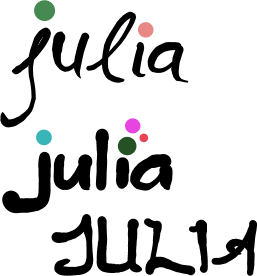 julia
julia
JULIA